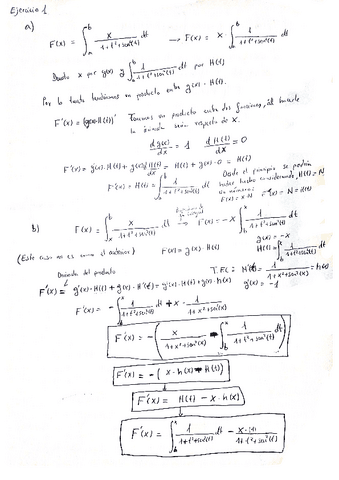 Ejercicio 1
a)
F(x) = ∫_a^b x/(1+t²+sen²(t)) dt → F(x) = x · ∫_a^b 1/(1+t²+sen²(t)) dt
x por g(x) y ∫_a^b 1/(1+t²+sen²(t)) dt por H(t)
Por lo tanto tendremos un producto entre g(x) · H(t).
F'(x) = (g(x)·H(t))' Tenemos un producto entre dos funciones, al hacerle
la derivada será respecto de x.
dg(x)/dx = 1 dH(t)/dx = 0
F'(x) = g'(x)·H(t) + g(x)·dH(t)/dx = H(t) + g(x)·0 = H(t)
F'(x) = H(t) = ∫_a^b 1/(1+t²+sen²(t)) dt
Desde el principio se podría
haber hecho considerando H(t) = N
un número: F(x) = x·N = N = H(t)
b) F(x) = ∫_x^b x/(1+t²+sen²(t)) dt → F(x) = -x ∫_b^x 1/(1+t²+sen²(t)) dt
(Este caso no es como el anterior) F(x) = g(x) · H(t)
g(x) = -x
H(t) = ∫_b^x 1/(1+t²+sen²(t)) dt
Derivada del producto
T.F.C.: H'(t) = 1/(1+x²+sen²(x)) = h(x)
F'(x) = g'(x)·H(t) + g(x)·H'(t) = g'(x)·H(t) + g(x)·h(x) g'(x) = -1
F'(x) = -∫_b^x 1/(1+t²+sen²(t)) dt + -x · 1/(1+x²+sen²(x))
F'(x) = -(x/(1+x²+sen²(x)) + ∫_b^x 1/(1+t²+sen²(t)) dt)
F'(x) = -(x·h(x) + H(t))
F'(x) = H(t) - x·h(x)